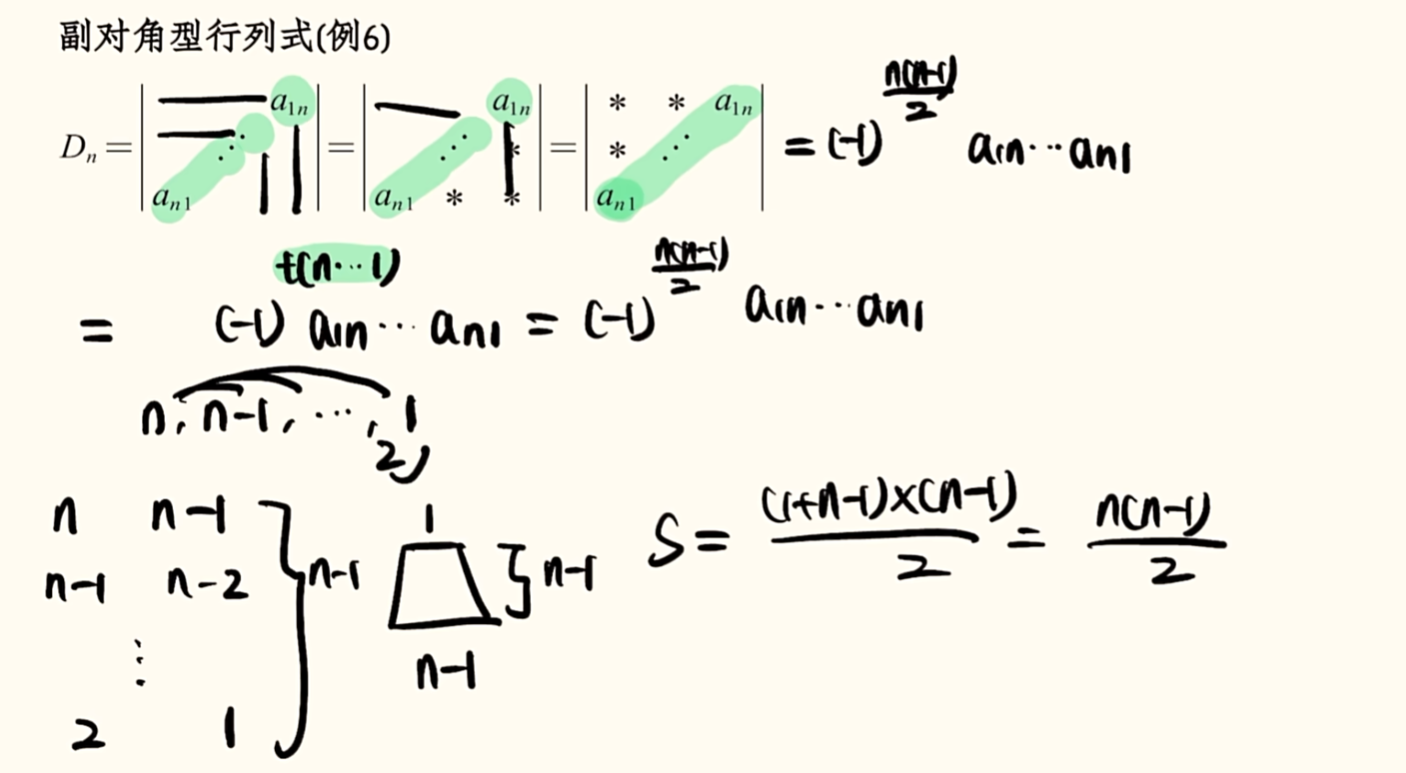 副对角型行列式(例6)
Dₙ = | a₁ₙ ⋰ aₙ₁ | = | a₁ₙ ⋰ * aₙ₁ * * | = | * * a₁ₙ * ⋰ aₙ₁ | = (-1)^(n(n-1)/2) a₁ₙ⋯aₙ₁
= (-1)^(t(n⋯1)) a₁ₙ⋯aₙ₁ = (-1)^(n(n-1)/2) a₁ₙ⋯aₙ₁
n, n-1, ⋯, 1
2
n n-1
n-1 n-2
⋮
2 1
n-1
1
n-1
n-1
S = (1+n-1)×(n-1)/2 = n(n-1)/2